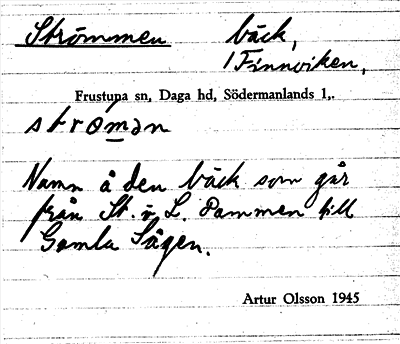 Strömmen bäck,
i Finnviken,
Frustuna sn, Daga hd, Södermanlands l.
strømən
Namn å den bäck som går
från St. o. L. Dammen till
Gamla Sågen.
Artur Olsson 1945